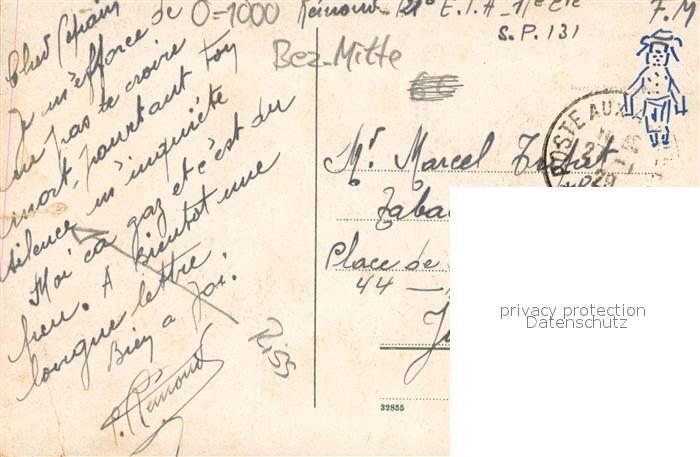 Cher Copain
Je m'efforce de
ne pas te croire
mort, pourtant ton
silence m'inquiète
Moi ca gaz et c'est du
feu. A Bientot une
longue lettre
Bien a toi.
P. Rémond
0=1000
Bez-Mitte
Riss
Rémond E.T.A
F.M
S.P. 131
POSTE AUX
Mr. Marcel
Taba
Place de
44 —
32855
privacy protection
Datenschutz